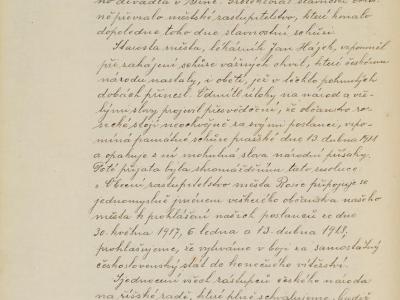 no divadla v Brně.
né pověřalo městské zastupitelstvo, které konalo
dopoledne toho dne slavnostní schůzi.
Starosta města, lékárník Jan Hájek, vzpomněl
při zahájení schůze vážných chvil, které českému
národu nastaly, i obětí, jež v těchto pohnutých
dobách přinesl. Odmítl útoky na národ a vře-
lými slovy projevil přesvědčení, že občanstvo ro-
sické stojí neochvějně za svými poslanci, vzpo-
míná památné schůze pražské dne 13. dubna 1918
a opakuje s ní mohutná slova národní přísahy.
Poté přijata byla shromážděním tato resoluce:
„Obecní zastupitelstvo města Rosic připojuje se
jednomyslně jménem veškerého občanstva našeho
města k prohlášení našich poslanců ze dne
30. května 1917, 6. ledna a 13. dubna 1918,
prohlašujeme, že vytrváme v boji za samostatný
československý stát do konečného vítězství.
Sjednocení všech zástupců českého národa
na říšské radě, které plně schvalujeme, budiž